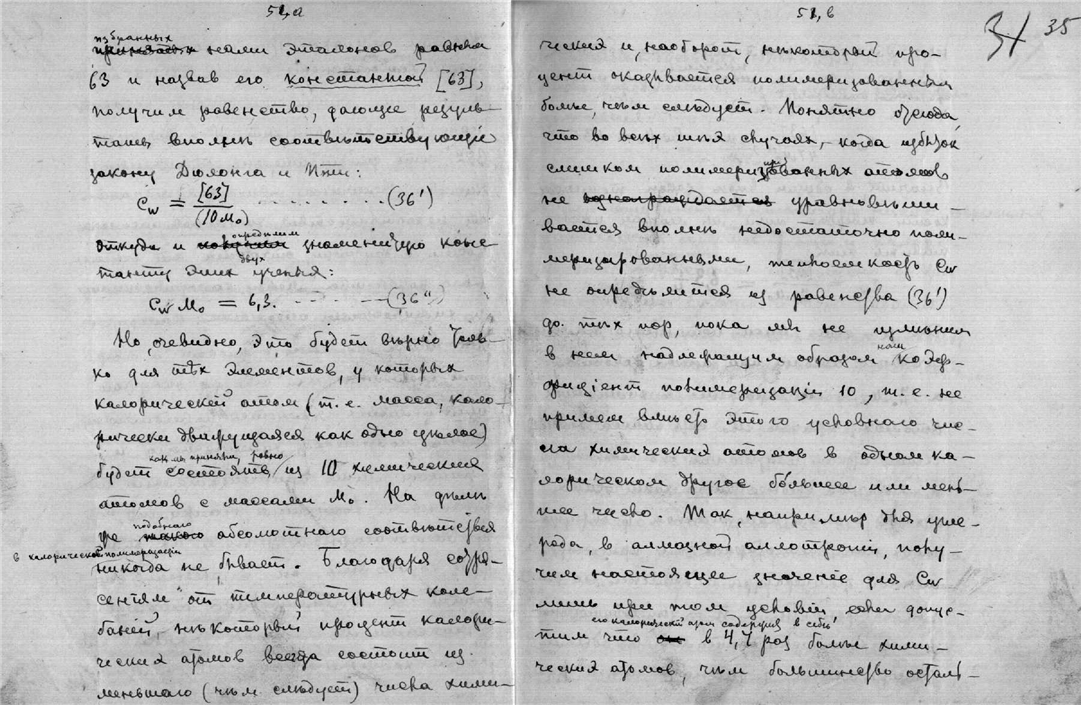 51,a
избранных
принятых нами эталонов равна
63 и назвав его константой [63],
получим равенство, дающее резуль-
таты вполнѣ соотвѣтствующіе
закону Дюлонга и Пти:
Cw = [63] / (10 M₀) . . . . . . . . . (36')
откуда и опредѣлим знаменитую конс
танту этих двух ученых:
Cw M₀ = 6,3. - - - - - (36'')
Но, очевидно, это будет вѣрно толь-
ко для тѣх элементов, у которых
калорическій атом (т. е. масса, кало-
рически движущаяся как одно цѣлое)
как мы приняли, ровно
будет состоять из 10 химических
атомов с массами M₀. На дѣлѣ
же подобнаго абсолютнаго соотвѣтствія
в калорической полимеризаціи
никогда не бывает. Благодаря сотря-
сеніям от температурных коле-
баній, нѣкоторый процент калори-
ческих атомов всегда состоит из
меньшаго (чѣм слѣдует) числа хими-
51,в
31 35
ческих и, наоборот, нѣкоторый про-
цент оказывается полимеризованным
болѣе, чѣм слѣдует. Понятно отсюда,
что во всѣх тѣх случаях, когда избыток
слишком полимеризованных атомов
не уравновѣши-
вается вполнѣ недостаточно поли-
меризированными, теплоемкость Cw
не опредѣлится из равенства (36')
до тѣх пор, пока мы не измѣним
в нем надлежащим образом наш коэф-
фиціент полимеризаціи 10, т. е. не
примем вмѣсто этого условнаго чис-
ла химических атомов в одном ка-
лорическом другое большее или мень-
шее число. Так, напримѣр для угле-
рода, в алмазной аллотропіи, полу-
чим настоящее значеніе для Cw
лишь при том условіи, если допус-
его калорическій атом содержит в себѣ
тим что в 4,4 раз болѣе хими-
ческих атомов, чѣм большинство осталь-